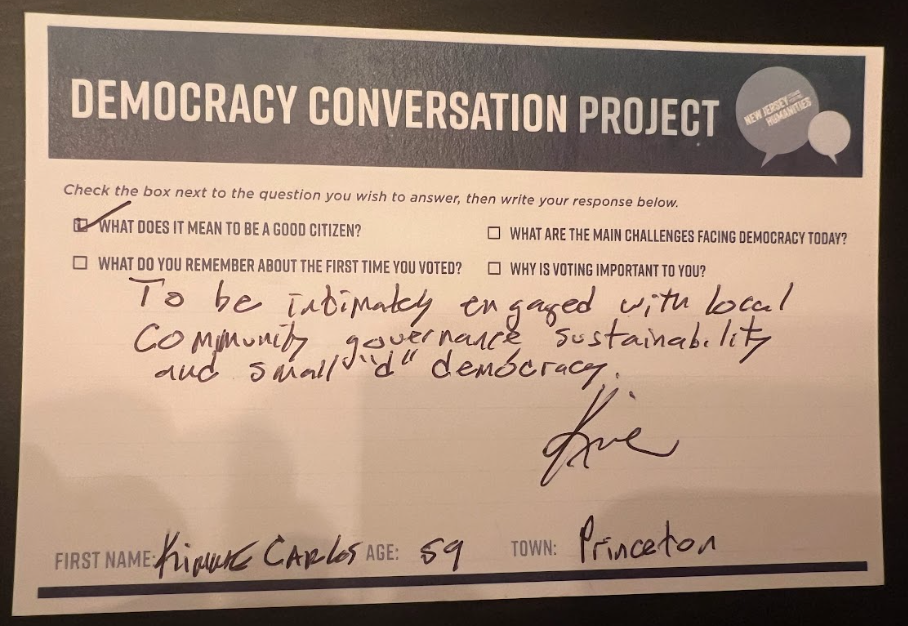 DEMOCRACY CONVERSATION PROJECT
NEW JERSEY
HUMANITIES
Check the box next to the question you wish to answer, then write your response below.
WHAT DOES IT MEAN TO BE A GOOD CITIZEN?
WHAT ARE THE MAIN CHALLENGES FACING DEMOCRACY TODAY?
WHAT DO YOU REMEMBER ABOUT THE FIRST TIME YOU VOTED?
WHY IS VOTING IMPORTANT TO YOU?
To be intimately engaged with local
community governance sustainability
and small "d" democracy.
FIRST NAME: CARLOS AGE: 59 TOWN: Princeton